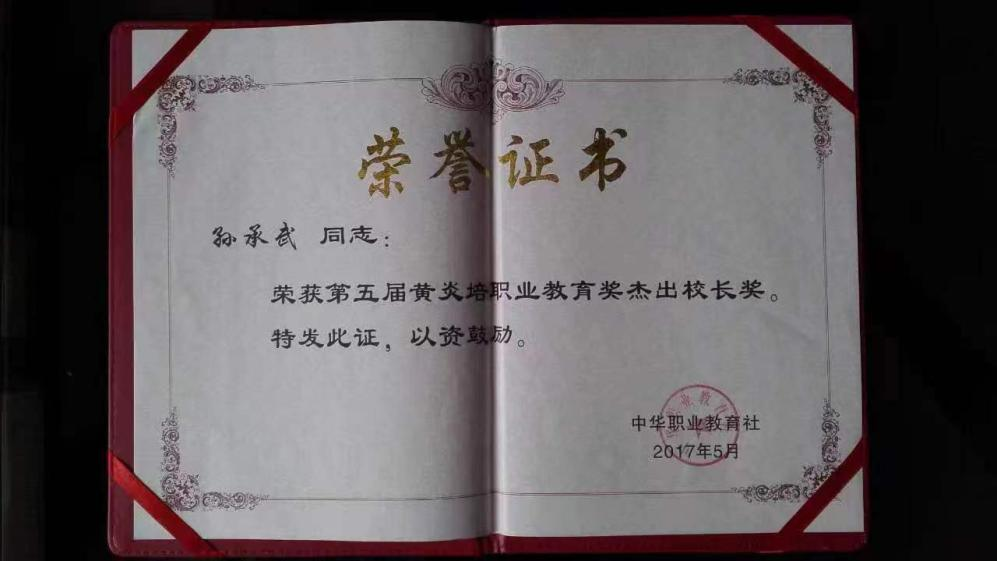 荣誉证书
孙承武 同志：
荣获第五届黄炎培职业教育奖杰出校长奖。
特发此证，以资鼓励。
中华职业教育社
2017年5月